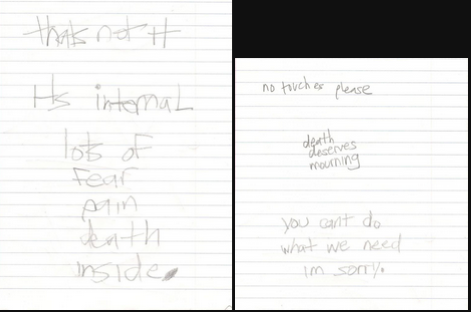 thats not it
Its internal
lots of
fear
pain
death
inside.
no touches please
death
deserves
mourning
you cant do
what we need
im sorry.